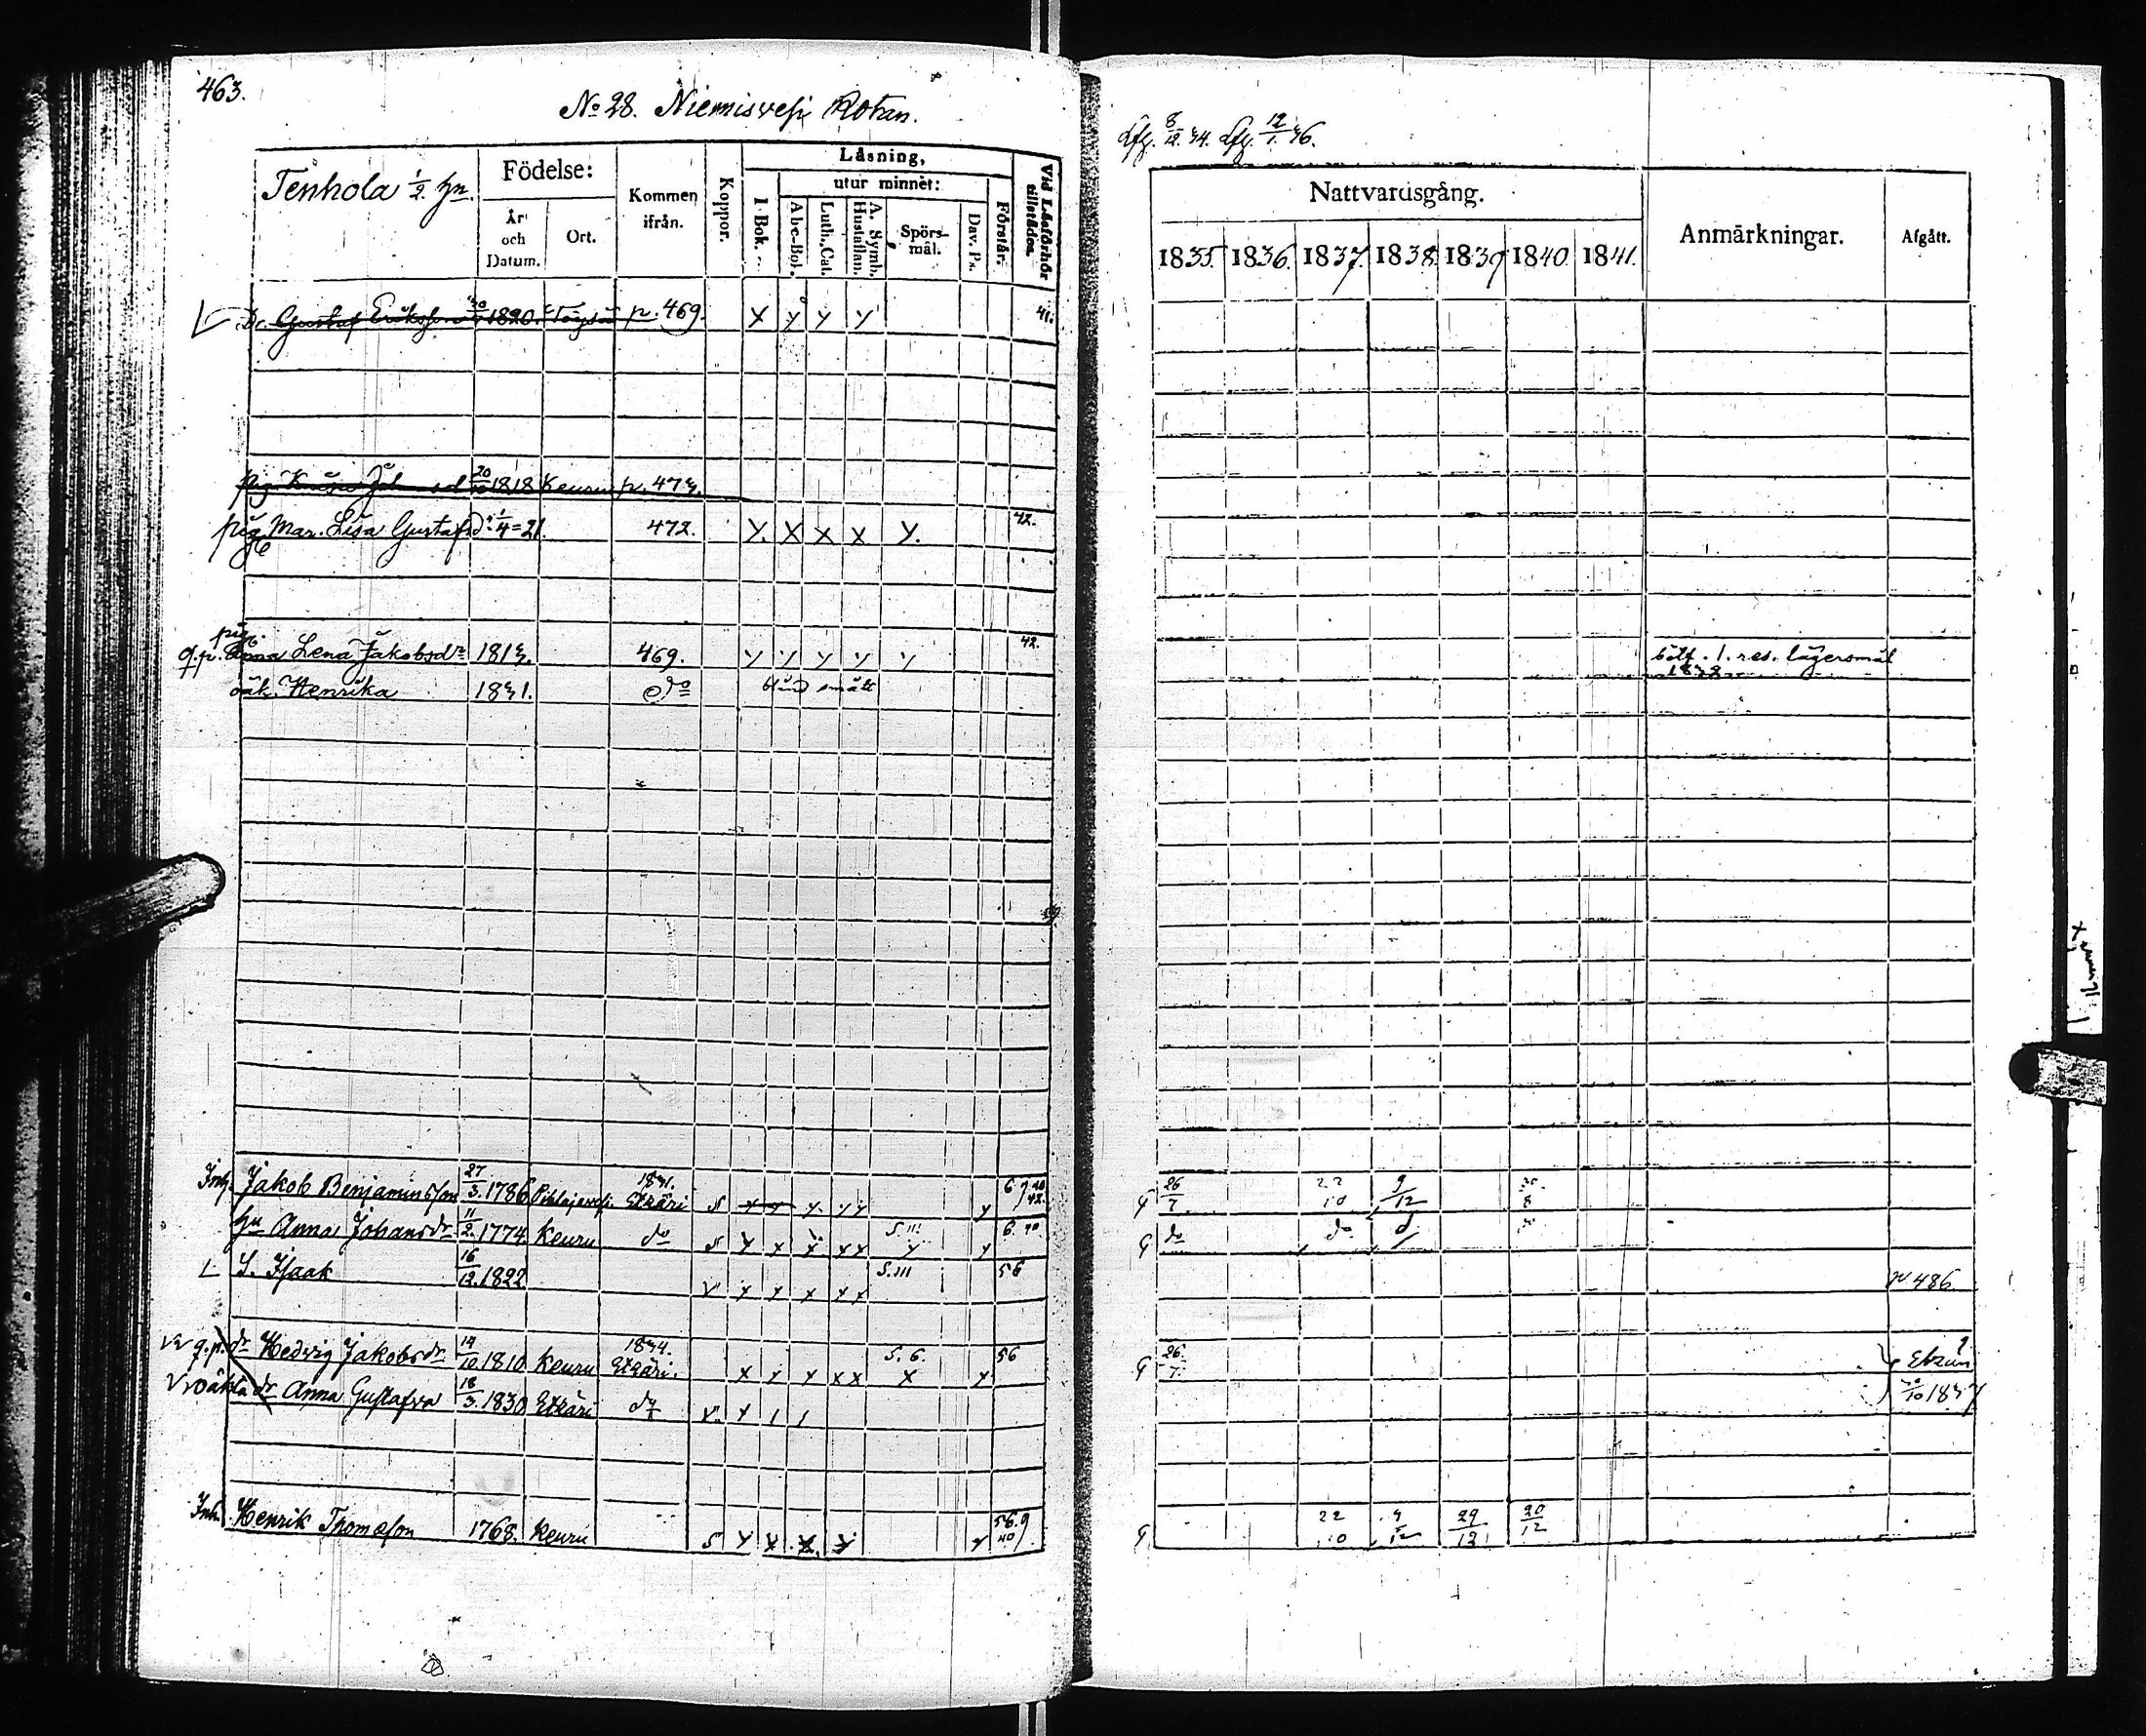 463.
No 28. Niemisvesi Rotan.
Tenhola 1/2 hn.
Födelse:
År och Datum.
Ort.
Kommen ifrån.
Koppor.
Läsning,
utur minnet:
I Bok.
Abc-Bok.
Luth. Cat.
A. Symb. Hustaflan.
Spörsmål.
Dav. Ps.
Förstår.
Vid Läsförhör tillstädes.
Dr. Gustaf Eriksson 1820. p. 469. x y y y 41.
pig. 20 1818 Keuru p. 474.
pig. Mar. Lisa Gustafsd 1/4 = 21. 472. y. x x x y. 42.
pig.
q.p. Anna Lena Jakobsdr 1814. 469. y y y y y 42.
oäk. Henrika 1841. do
Inh. Jakob Benjaminsson 27/3. 1786 Pihlajavesi. 1841. Etzäri
hu Anna Johansdr 11/2. 1774. Keuru do S. III. 6. 40.
L S. Isaak 16/12. 1822 S. III 56
q.p. dr Hedvig Jakobsdr 14/10. 1810 Keuru 1834. Etzäri. S. 6. 56
oäkta dr Anna Gustafva 18/3. 1830 Etzäri do
Inh. Henrik Thomasson 1768. Keuru 56. 40
Lfg. 8/12 44. Lfg. 12/1 46.
Nattvardsgång.
1835. 1836. 1837. 1838. 1839 1840. 1841.
Anmärkningar.
Afgått.
1. res. lägersmål
G 26/7 22/10 9/12
G do do
p 486
G 26/7
G 22/10 9/12 29/12 20/12